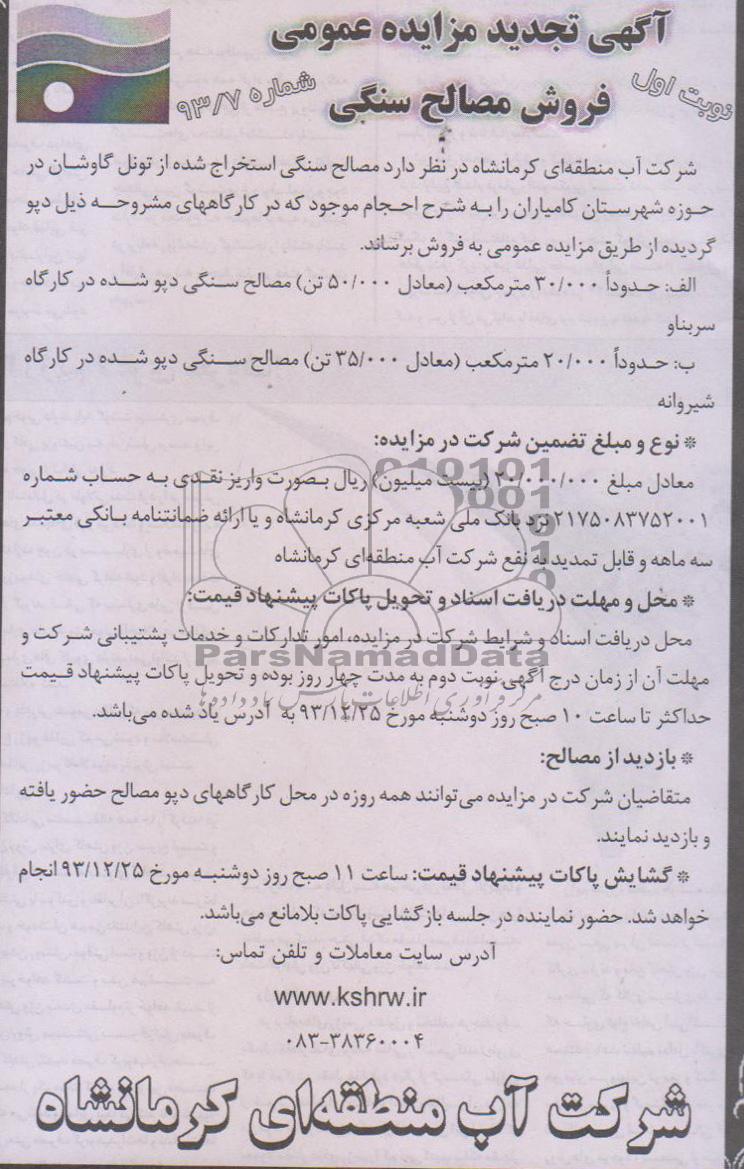 آگهی تجدید مزایده عمومی
نوبت اول
فروش مصالح سنگی
شماره ۹۳/۷
شرکت آب منطقه‌ای کرمانشاه در نظر دارد مصالح سنگی استخراج شده از تونل گاوشان در
حوزه شهرستان کامیاران را به شرح احجام موجود که در کارگاههای مشروحه ذیل دپو
گردیده از طریق مزایده عمومی به فروش برساند.
الف: حدوداً ۳۰/۰۰۰ مترمکعب (معادل ۵۰/۰۰۰ تن) مصالح سنگی دپو شده در کارگاه
سربناو
ب: حدوداً ۲۰/۰۰۰ مترمکعب (معادل ۳۵/۰۰۰ تن) مصالح سنگی دپو شده در کارگاه
شیروانه
* نوع و مبلغ تضمین شرکت در مزایده:
معادل مبلغ ۲۰/۰۰۰/۰۰۰ (بیست میلیون) ریال بصورت واریز نقدی به حساب شماره
۲۱۷۵۰۸۳۷۵۲۰۰۱ نزد بانک ملی شعبه مرکزی کرمانشاه و یا ارائه ضمانتنامه بانکی معتبر
سه ماهه و قابل تمدید به نفع شرکت آب منطقه‌ای کرمانشاه
* محل و مهلت دریافت اسناد و تحویل پاکات پیشنهاد قیمت:
محل دریافت اسناد و شرایط شرکت در مزایده، امور تدارکات و خدمات پشتیبانی شرکت و
ParsNamadData
مهلت آن از زمان درج آگهی نوبت دوم به مدت چهار روز بوده و تحویل پاکات پیشنهاد قیمت
مرکز فرآوری اطلاعات پارس نماد داده‌ها
حداکثر تا ساعت ۱۰ صبح روز دوشنبه مورخ ۹۳/۱۲/۲۵ به آدرس یاد شده می‌باشد.
* بازدید از مصالح:
متقاضیان شرکت در مزایده می‌توانند همه روزه در محل کارگاههای دپو مصالح حضور یافته
و بازدید نمایند.
* گشایش پاکات پیشنهاد قیمت: ساعت ۱۱ صبح روز دوشنبه مورخ ۹۳/۱۲/۲۵ انجام
خواهد شد. حضور نماینده در جلسه بازگشایی پاکات بلامانع می‌باشد.
آدرس سایت معاملات و تلفن تماس:
www.kshrw.ir
۰۸۳-۳۸۳۶۰۰۰۴
شرکت آب منطقه‌ای کرمانشاه